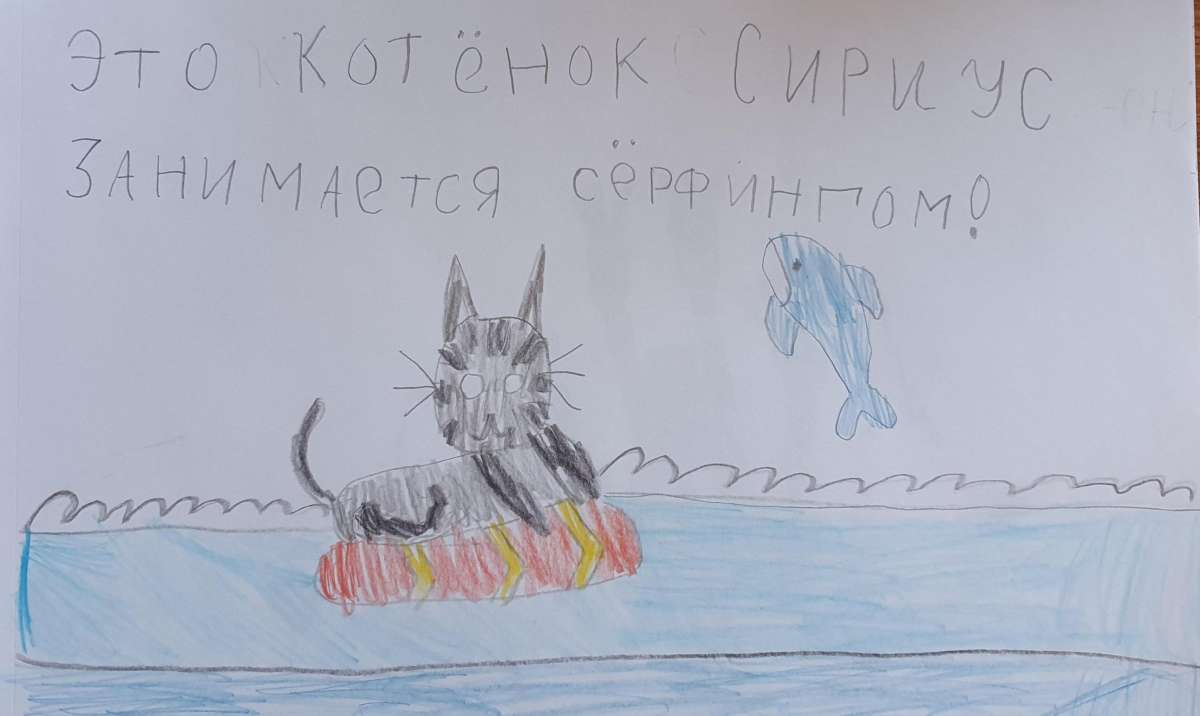 Это котёнок Сириус
занимается сёрфингом!